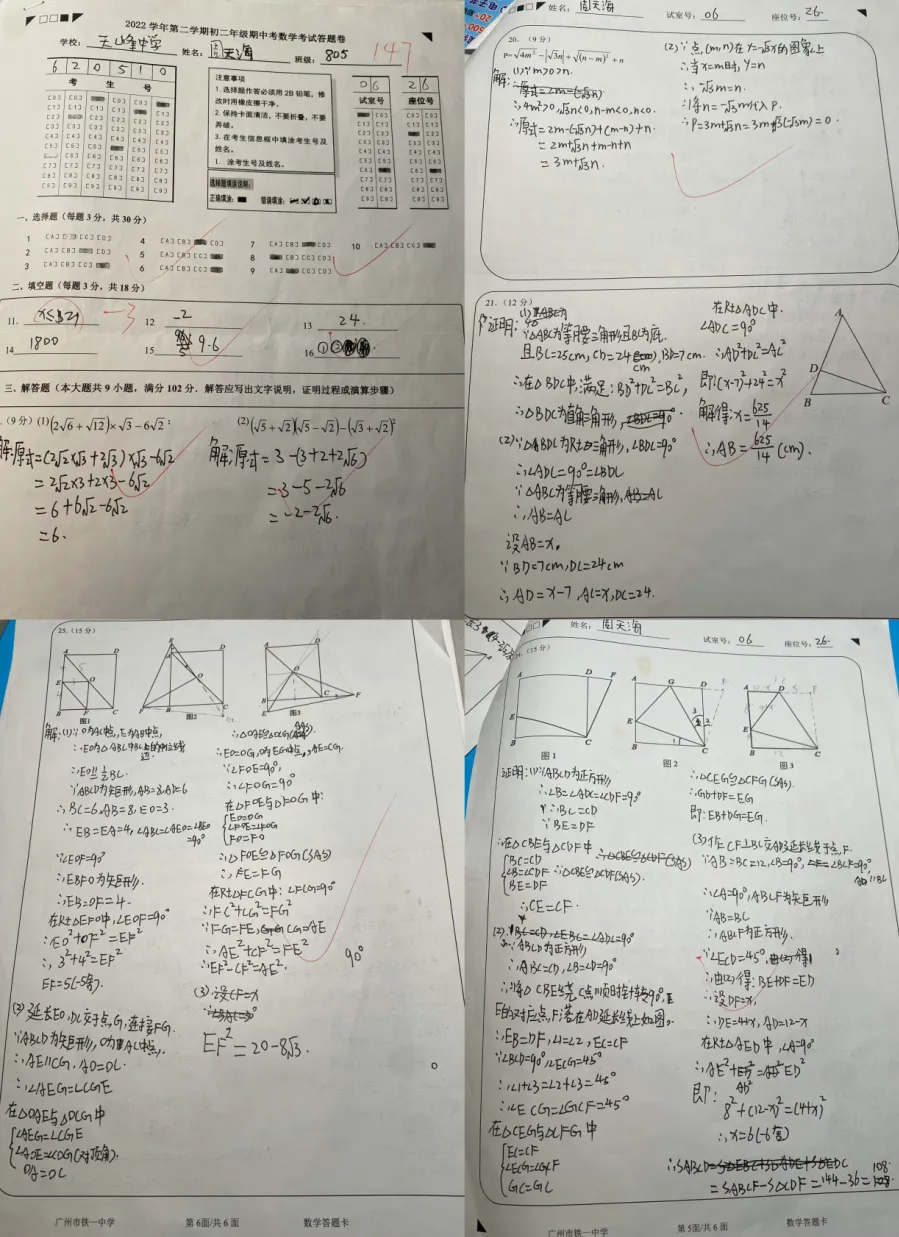 2022 学年第二学期初二年级期中考数学考试答题卷
学校: 天山峰中学 姓名: 周天海 班级: 805
147
6 2 0 5 1 0
考 生 号
注意事项
1. 选择题作答必须用 2B 铅笔,修改时用橡皮擦干净。
2. 保持卡面清洁,不要折叠,不要弄破。
3. 在考生信息框中填涂考生号及姓名。
1. 涂考生号及姓名。
选择题填涂说明:
正确填涂:
错误填涂:
06 26
试室号 座位号
一、选择题(每题 3 分,共 30 分)
1 4 7 10
2 5 8
3 6 9
二、填空题(每题 3 分,共 18 分)
11. -3 12 -2 13 24.
14 1800 15 9.6 16
三、解答题(本大题共 9 小题,满分 102 分. 解答应写出文字说明,证明过程或演算步骤)
(9 分) (1) (2√6+√12)×√3-6√2
解:原式=(2√2×√3+2√3)×√3-6√2
=2√2×3+2×3-6√2
=6+6√2-6√2
=6.
(2) (√5+√2)(√5-√2)-(√3+√2)²
解:原式=3-(3+2+2√6)
=3-5-2√6
=-2-2√6.
姓名: 周天海 试室号: 06 座位号: 26
20. (9 分)
P=√4m²-|√3n|+√(n-m)²+n
解:(1)∵m>0>n.
∴4m²>0,√3n<0,n-m<0,n<0.
∴原式=2m-(-√3n)+(m-n)+n.
=2m+√3n+m-n+n
=3m+√3n.
(2)∵点(m,n)在y=-√3x的图象上
∴当x=m时,y=n
∴-√3m=n.
∴将n=-√3m代入P.
∴P=3m+√3n=3m+√3(-√3m)=0.
21. (12 分)
证明:(1)
∵△ABC为等腰三角形且BC为底
且BC=25cm,CD=24cm,BD=7cm.
∴在△BDC中满足:BD²+DC²=BC²,
∴△BDC为直角三角形,
(2)∵△BDC为Rt△三角形,∠BDC=90°
∴∠ADC=90°=∠BDC
∵△ABC为等腰三角形,
∴AB=AC
设AB=x.
∵BD=7cm,DC=24cm
∴AD=x-7,AC=x,DC=24.
在Rt△ADC中.
∠ADC=90°
∴AD²+DC²=AC²
即:(x-7)²+24²=x²
解得:x=625/14
∴AB=625/14(cm).
A
D
B C
25. (15 分)
图1 图2 图3
解:(1)∵O为AC中点,E为AB中点,
∴EO为△ABC中BC边的中位线
∴EO∥½BC.
∵ABCD为矩形,AB=8,AD=6
∴BC=6,AB=8,EO=3.
∴EB=EA=4,∠ABC=∠AEO=∠BEO=90°
∵∠EOF=90°
∴EBFO为矩形.
∴EB=OF=4.
在Rt△EFO中,∠EOF=90°
∴EO²+OF²=EF²
∴3²+4²=EF²
EF=5(-5舍).
(2)延长EO,DC交于点G,连接FG.
∵ABCD为矩形,O为AC中点,
∴AE∥CG,AO=OC.
∴∠AEG=∠CGE
在△OAE与△OCG中
∠AEG=∠CGE
∠AOE=∠COG(对顶角).
OA=OC
∴△OAE≌△OCG(AAS)
∴EO=OG,O为EG中点,AE=CG.
∵∠FOE=90°,
∴∠FOG=90°
在△FOE与△FOG中:
EO=OG
∠FOE=∠FOG
FO=FO
∴△FOE≌△FOG(SAS)
∴FE=FG
在Rt△FCG中:∠FCG=90°
∴FC²+CG²=FG²
∵FG=FE,CG=AE
∴AE²+CF²=FE²
∴EF²-CF²=AE².
90°
(3)设CF=x
EF²=20-8√3.
广州市铁一中学 第 6面/共 6 面 数学答题卡
姓名: 周天海 试室号: 06 座位号: 26
(15 分)
图1 图2 图3
证明:(1)∵ABCD为正方形
∴∠B=∠ADC=∠CDF=90°
∵BC=CD
∵BE=DF
∴在△CBE与△CDF中
BC=CD
∠B=∠CDF
BE=DF
∴△CBE≌△CDF(SAS).
∴CE=CF.
(2)
∵ABCD为正方形
∴BC=CD,∠B=∠D=90°
∴将△CBE绕C点顺时针转90°,
E的对应点,F落在AD延长线上如图。
∴EB=DF,∠1=∠2,EC=CF
∵∠BCD=90°,∠ECG=45°
∴∠1+∠3=∠2+∠3=45°
∴∠ECG=∠GCF=45°
在△CEG与△CFG中
EC=CF
∠ECG=∠GCF
GC=GC
∴△CEG≌△CFG(SAS).
∴GD+DF=EG
即:EB+DG=EG.
(3)作CF⊥BC交AD延长线于点F.
∵AB=BC=12,∠B=90°,∠BCF=90°, AD∥BC
∴∠A=90°,ABCF为矩形
∵AB=BC
∴ABCF为正方形.
∵∠ECD=45°,
∴由(2)得:BE+DF=ED
∴设DF=x,
∴DE=4+x,AD=12-x
在Rt△AED中,∠A=90°
∴AE²+AD²=ED²
即:8²+(12-x)²=(4+x)²
∴x=6(-6舍)
∴SABCD
=SABCF-S△CDF=144-36=108
广州市铁一中学 第 5面/共 6 面 数学答题卡